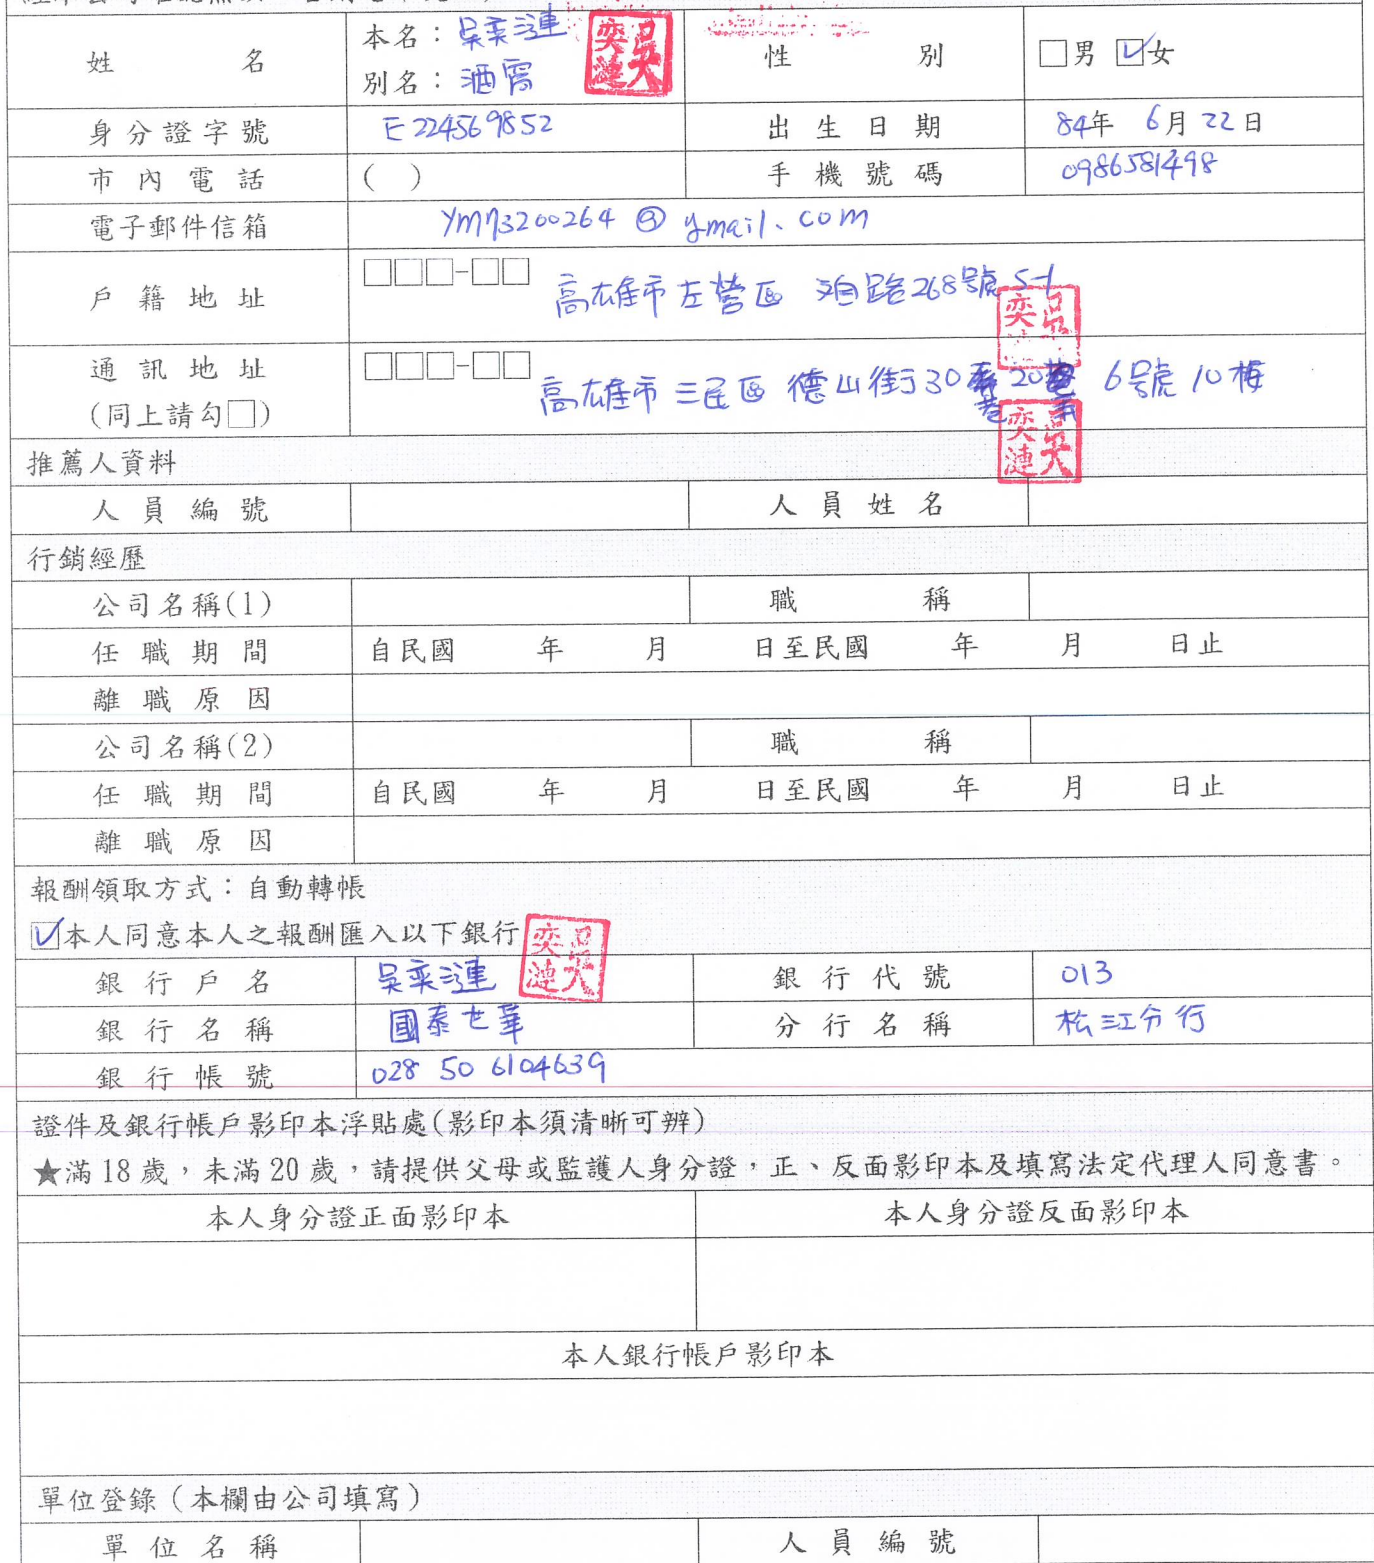 姓名
本名：吳奕漣
別名：洒窩
性別
□男 ☑女
身分證字號
E224569852
出生日期
84年 6月 22日
市內電話
( )
手機號碼
0986581498
電子郵件信箱
ym73200264@ymail.com
戶籍地址
□□□-□□
高雄市左營區 路268號5-1
通訊地址
(同上請勾□)
□□□-□□
高雄市三民區德山街30巷20弄6號10樓
推薦人資料
人員編號
人員姓名
行銷經歷
公司名稱(1)
職稱
任職期間
自民國 年 月 日至民國 年 月 日止
離職原因
公司名稱(2)
職稱
任職期間
自民國 年 月 日至民國 年 月 日止
離職原因
報酬領取方式：自動轉帳
☑本人同意本人之報酬匯入以下銀行
銀行戶名
吳奕漣
吳奕漣
銀行代號
013
銀行名稱
國泰世華
分行名稱
松江分行
銀行帳號
028 50 6104639
證件及銀行帳戶影印本浮貼處(影印本須清晰可辨)
★滿18歲，未滿20歲，請提供父母或監護人身分證，正、反面影印本及填寫法定代理人同意書。
本人身分證正面影印本
本人身分證反面影印本
本人銀行帳戶影印本
單位登錄（本欄由公司填寫）
單位名稱
人員編號